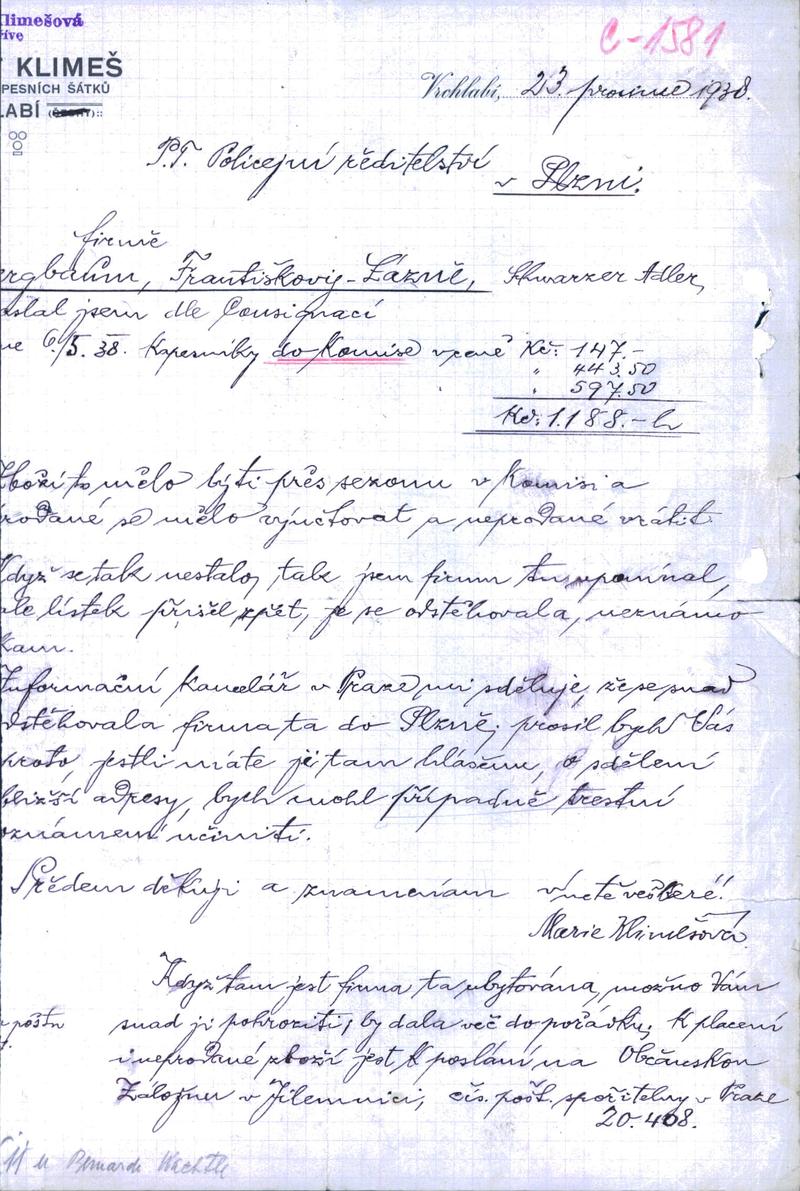 Klimešová
C-1581
KLIMEŠ
PESNÍCH ŠÁTKŮ
LABÍ
Vrchlabí, 23. prosince 1938.
P.T. Policejní ředitelství
v Plzni.
firmě
ergbaum, Františkovy-Lázně, Schwarzer Adler,
oslal jsem dle Consignací
ne 6/5. 38. Kapesníky do Komise v ceně Kč: 147.-
" 443.50
" 597.50
Kč: 1.188.- h
Zboží to mělo býti přes sezonu v Komisi a
rodané se mělo vyúčtovat a neprodané vrátit.
Když se tak nestalo, tak jsem firmu tu upomínal,
ale lístek přišel zpět, že se odstěhovala, neznámo
kam.
Informační kancelář v Praze mi sděluje, že se snad
odstěhovala firma ta do Plzně; prosil bych Vás
proto, jestli máte ji tam hlášenu, o sdělení
bližší adresy, bych mohl případně trestní
oznámení učiniti.
Předem děkuji a znamenám v úctě veškeré!
Marie Klimešová
Když tam jest firma ta ubytována, možno Vám
snad ji pohroziti, by dala věc do pořádku. K placení
i neprodané zboží jest k poslání na Občanskou
Záložnu v Jilemnici, čís. pošt. spořitelny v Praze
20.408.
poštu
u Bernarda Wachtla